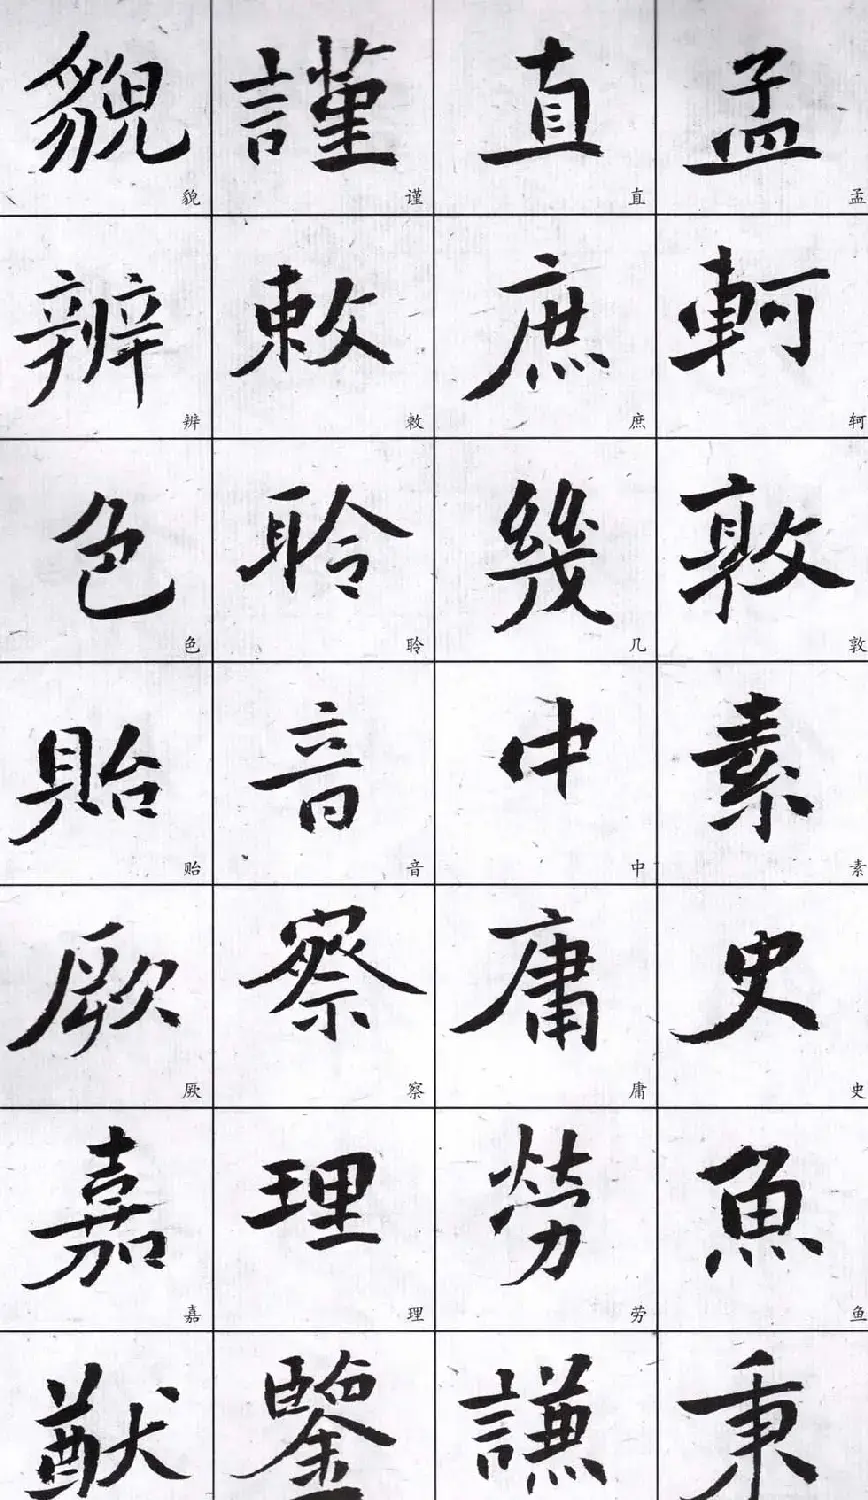 孟軻敦素史魚秉
孟轲敦素史鱼
直庶幾中庸勞謙
直庶几中庸劳
謹敕聆音察理鑒
谨敕聆音察理
貌辨色貽厥嘉猷
貌辨色贻厥嘉